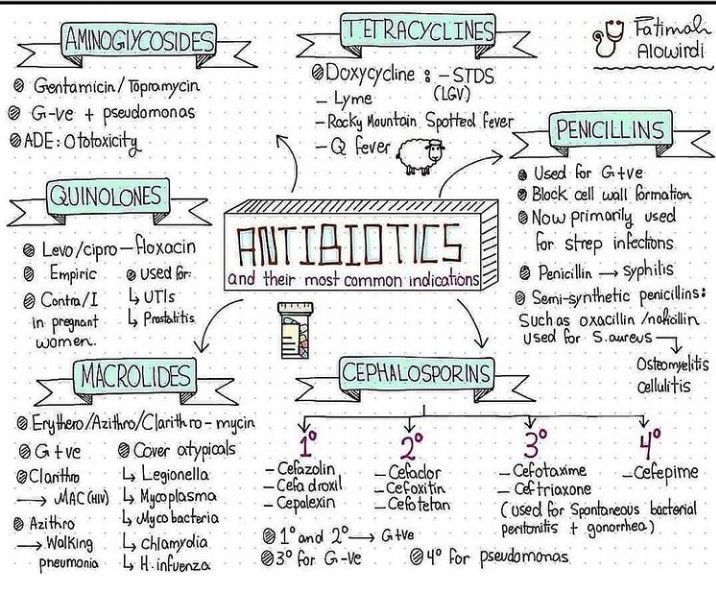 AMINOGLYCOSIDES
Gentamicin/Topramycin
G-ve + pseudomonas
ADE: Ototoxicity
TETRACYCLINES
Doxycycline : - STDS
(LGV)
- Lyme
- Rocky Mountain Spotted fever
- Q fever
Fatimah
Alowirdi
PENICILLINS
Used for G+ve
Block cell wall formation
Now primarily used
for strep infections
Penicillin → syphilis
Semi-synthetic penicillins:
Such as oxacillin /nafcillin
Used for S.aureus
Osteomyelitis
cellulitis
QUINOLONES
Levo/cipro – floxacin
Empiric
Contra/I
in pregnant
women.
used for:
↳ UTIs
↳ Prostatitis
ANTIBIOTICS
and their most common indications
MACROLIDES
Erythero/Azithro/Clarithro - mycin
G+ve
Clarithro
→ MAC (HIV)
Azithro
→ Walking
pneumonia
Cover atypicals
↳ Legionella
↳ Mycoplasma
↳ Myco bacteria
↳ chlamydia
↳ H. infuenza
CEPHALOSPORINS
1°
- Cefazolin
- Cefa droxil
- Cepalexin
2°
- Cefador
- Cefoxitin
- Cefotetan
3°
- Cefotaxime
- Ceftriaxone
(used for Spontaneous bacterial
peritonitis + gonorrhea)
4°
- Cefepime
1° and 2° → G+ve
3° for G-ve
4° for pseudomonas